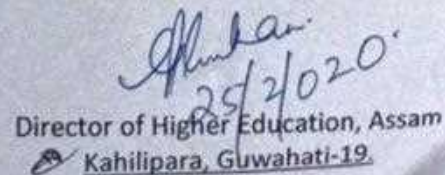 25/2/2020.
Director of Higher Education, Assam
Kahilipara, Guwahati-19.